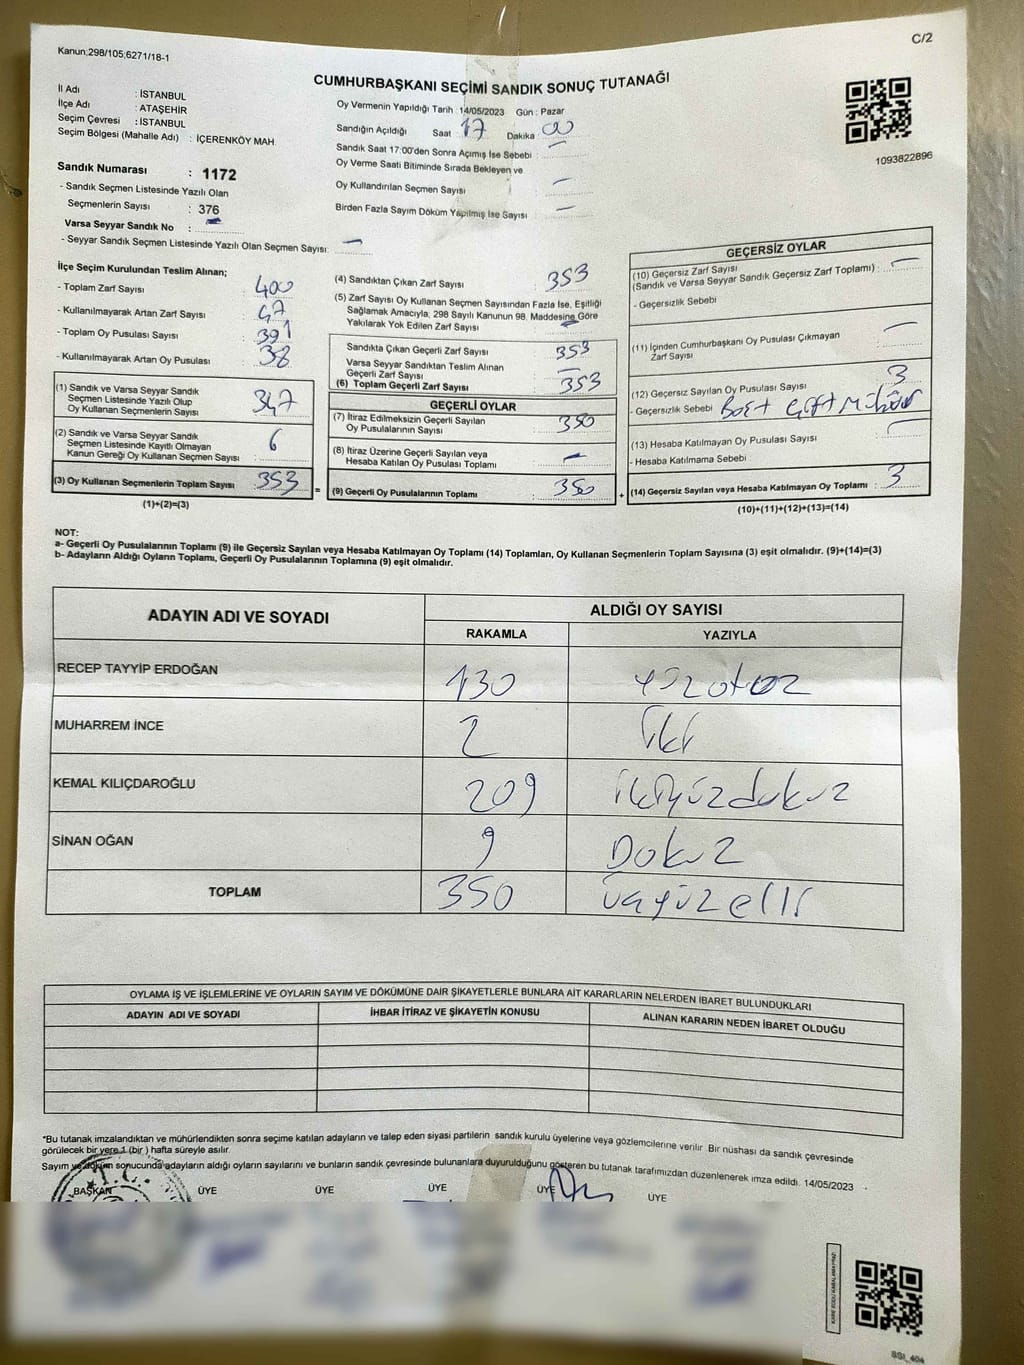 Kanun;298/105;6271/18-1
C/2
CUMHURBAŞKANI SEÇİMİ SANDIK SONUÇ TUTANAĞI
İl Adı : İSTANBUL
İlçe Adı : ATAŞEHİR
Seçim Çevresi : İSTANBUL
Seçim Bölgesi (Mahalle Adı) : İÇERENKÖY MAH.
Oy Vermenin Yapıldığı Tarih : 14/05/2023 Gün : Pazar
Sandığın Açıldığı Saat : 17 Dakika : 00
Sandık Saat 17:00'den Sonra Açımış İse Sebebi : —
Oy Verme Saati Bitiminde Sırada Bekleyen ve
Oy Kullandırılan Seçmen Sayısı : —
Birden Fazla Sayım Döküm Yapılmış İse Sayısı : —
1093822896
Sandık Numarası : 1172
- Sandık Seçmen Listesinde Yazılı Olan
Seçmenlerin Sayısı : 376
Varsa Seyyar Sandık No : —
- Seyyar Sandık Seçmen Listesinde Yazılı Olan Seçmen Sayısı: —
İlçe Seçim Kurulundan Teslim Alınan;
- Toplam Zarf Sayısı : 400
- Kullanılmayarak Artan Zarf Sayısı : 47
- Toplam Oy Pusulası Sayısı : 391
- Kullanılmayarak Artan Oy Pusulası : 38
(1) Sandık ve Varsa Seyyar Sandık
Seçmen Listesinde Yazılı Olup
Oy Kullanan Seçmenlerin Sayısı : 347
(2) Sandık ve Varsa Seyyar Sandık
Seçmen Listesinde Kayıtlı Olmayan
Kanun Gereği Oy Kullanan Seçmen Sayısı : 6
(3) Oy Kullanan Seçmenlerin Toplam Sayısı : 353
(1)+(2)=(3)
=
(4) Sandıktan Çıkan Zarf Sayısı : 353
(5) Zarf Sayısı Oy Kullanan Seçmen Sayısından Fazla İse, Eşitliği
Sağlamak Amacıyla, 298 Sayılı Kanunun 98. Maddesine Göre
Yakılarak Yok Edilen Zarf Sayısı : —
Sandıkta Çıkan Geçerli Zarf Sayısı : 353
Varsa Seyyar Sandıktan Teslim Alınan
Geçerli Zarf Sayısı : —
(6) Toplam Geçerli Zarf Sayısı : 353
GEÇERLİ OYLAR
(7) İtiraz Edilmeksizin Geçerli Sayılan
Oy Pusulalarının Sayısı : 350
(8) İtiraz Üzerine Geçerli Sayılan veya
Hesaba Katılan Oy Pusulası Toplamı : —
(9) Geçerli Oy Pusulalarının Toplamı : 350
+
GEÇERSİZ OYLAR
(10) Geçersiz Zarf Sayısı
(Sandık ve Varsa Seyyar Sandık Geçersiz Zarf Toplamı) : —
- Geçersizlik Sebebi
(11) İçinden Cumhurbaşkanı Oy Pusulası Çıkmayan
Zarf Sayısı : —
(12) Geçersiz Sayılan Oy Pusulası Sayısı : 3
- Geçersizlik Sebebi Boş+ Çift Mühür
(13) Hesaba Katılmayan Oy Pusulası Sayısı : —
- Hesaba Katılmama Sebebi
(14) Geçersiz Sayılan veya Hesaba Katılmayan Oy Toplamı : 3
(10)+(11)+(12)+(13)=(14)
NOT:
a- Geçerli Oy Pusulalarının Toplamı (9) ile Geçersiz Sayılan veya Hesaba Katılmayan Oy Toplamı (14) Toplamları, Oy Kullanan Seçmenlerin Toplam Sayısına (3) eşit olmalıdır. (9)+(14)=(3)
b- Adayların Aldığı Oyların Toplamı, Geçerli Oy Pusulalarının Toplamına (9) eşit olmalıdır.
ADAYIN ADI VE SOYADI
ALDIĞI OY SAYISI
RAKAMLA YAZIYLA
RECEP TAYYİP ERDOĞAN 130 yüzotuz
MUHARREM İNCE 2 İki
KEMAL KILIÇDAROĞLU 209 ikiyüzdokuz
SİNAN OĞAN 9 Dokuz
TOPLAM 350 üçyüzelli
OYLAMA İŞ VE İŞLEMLERİNE VE OYLARIN SAYIM VE DÖKÜMÜNE DAİR ŞİKAYETLERLE BUNLARA AİT KARARLARIN NELERDEN İBARET BULUNDUKLARI
ADAYIN ADI VE SOYADI İHBAR İTİRAZ VE ŞİKAYETİN KONUSU ALINAN KARARIN NEDEN İBARET OLDUĞU
*Bu tutanak imzalandıktan ve mühürlendikten sonra seçime katılan adayların ve talep eden siyasi partilerin sandık kurulu üyelerine veya gözlemcilerine verilir. Bir nüshası da sandık çevresinde
görülecek bir yere 1 (bir ) hafta süreyle asılır.
Sayım ve döküm sonucunda adayların aldığı oyların sayılarını ve bunların sandık çevresinde bulunanlara duyurulduğunu gösteren bu tutanak tarafımızdan düzenlenerek imza edildi. 14/05/2023
T.C.
BAŞKAN ÜYE ÜYE ÜYE ÜYE ÜYE